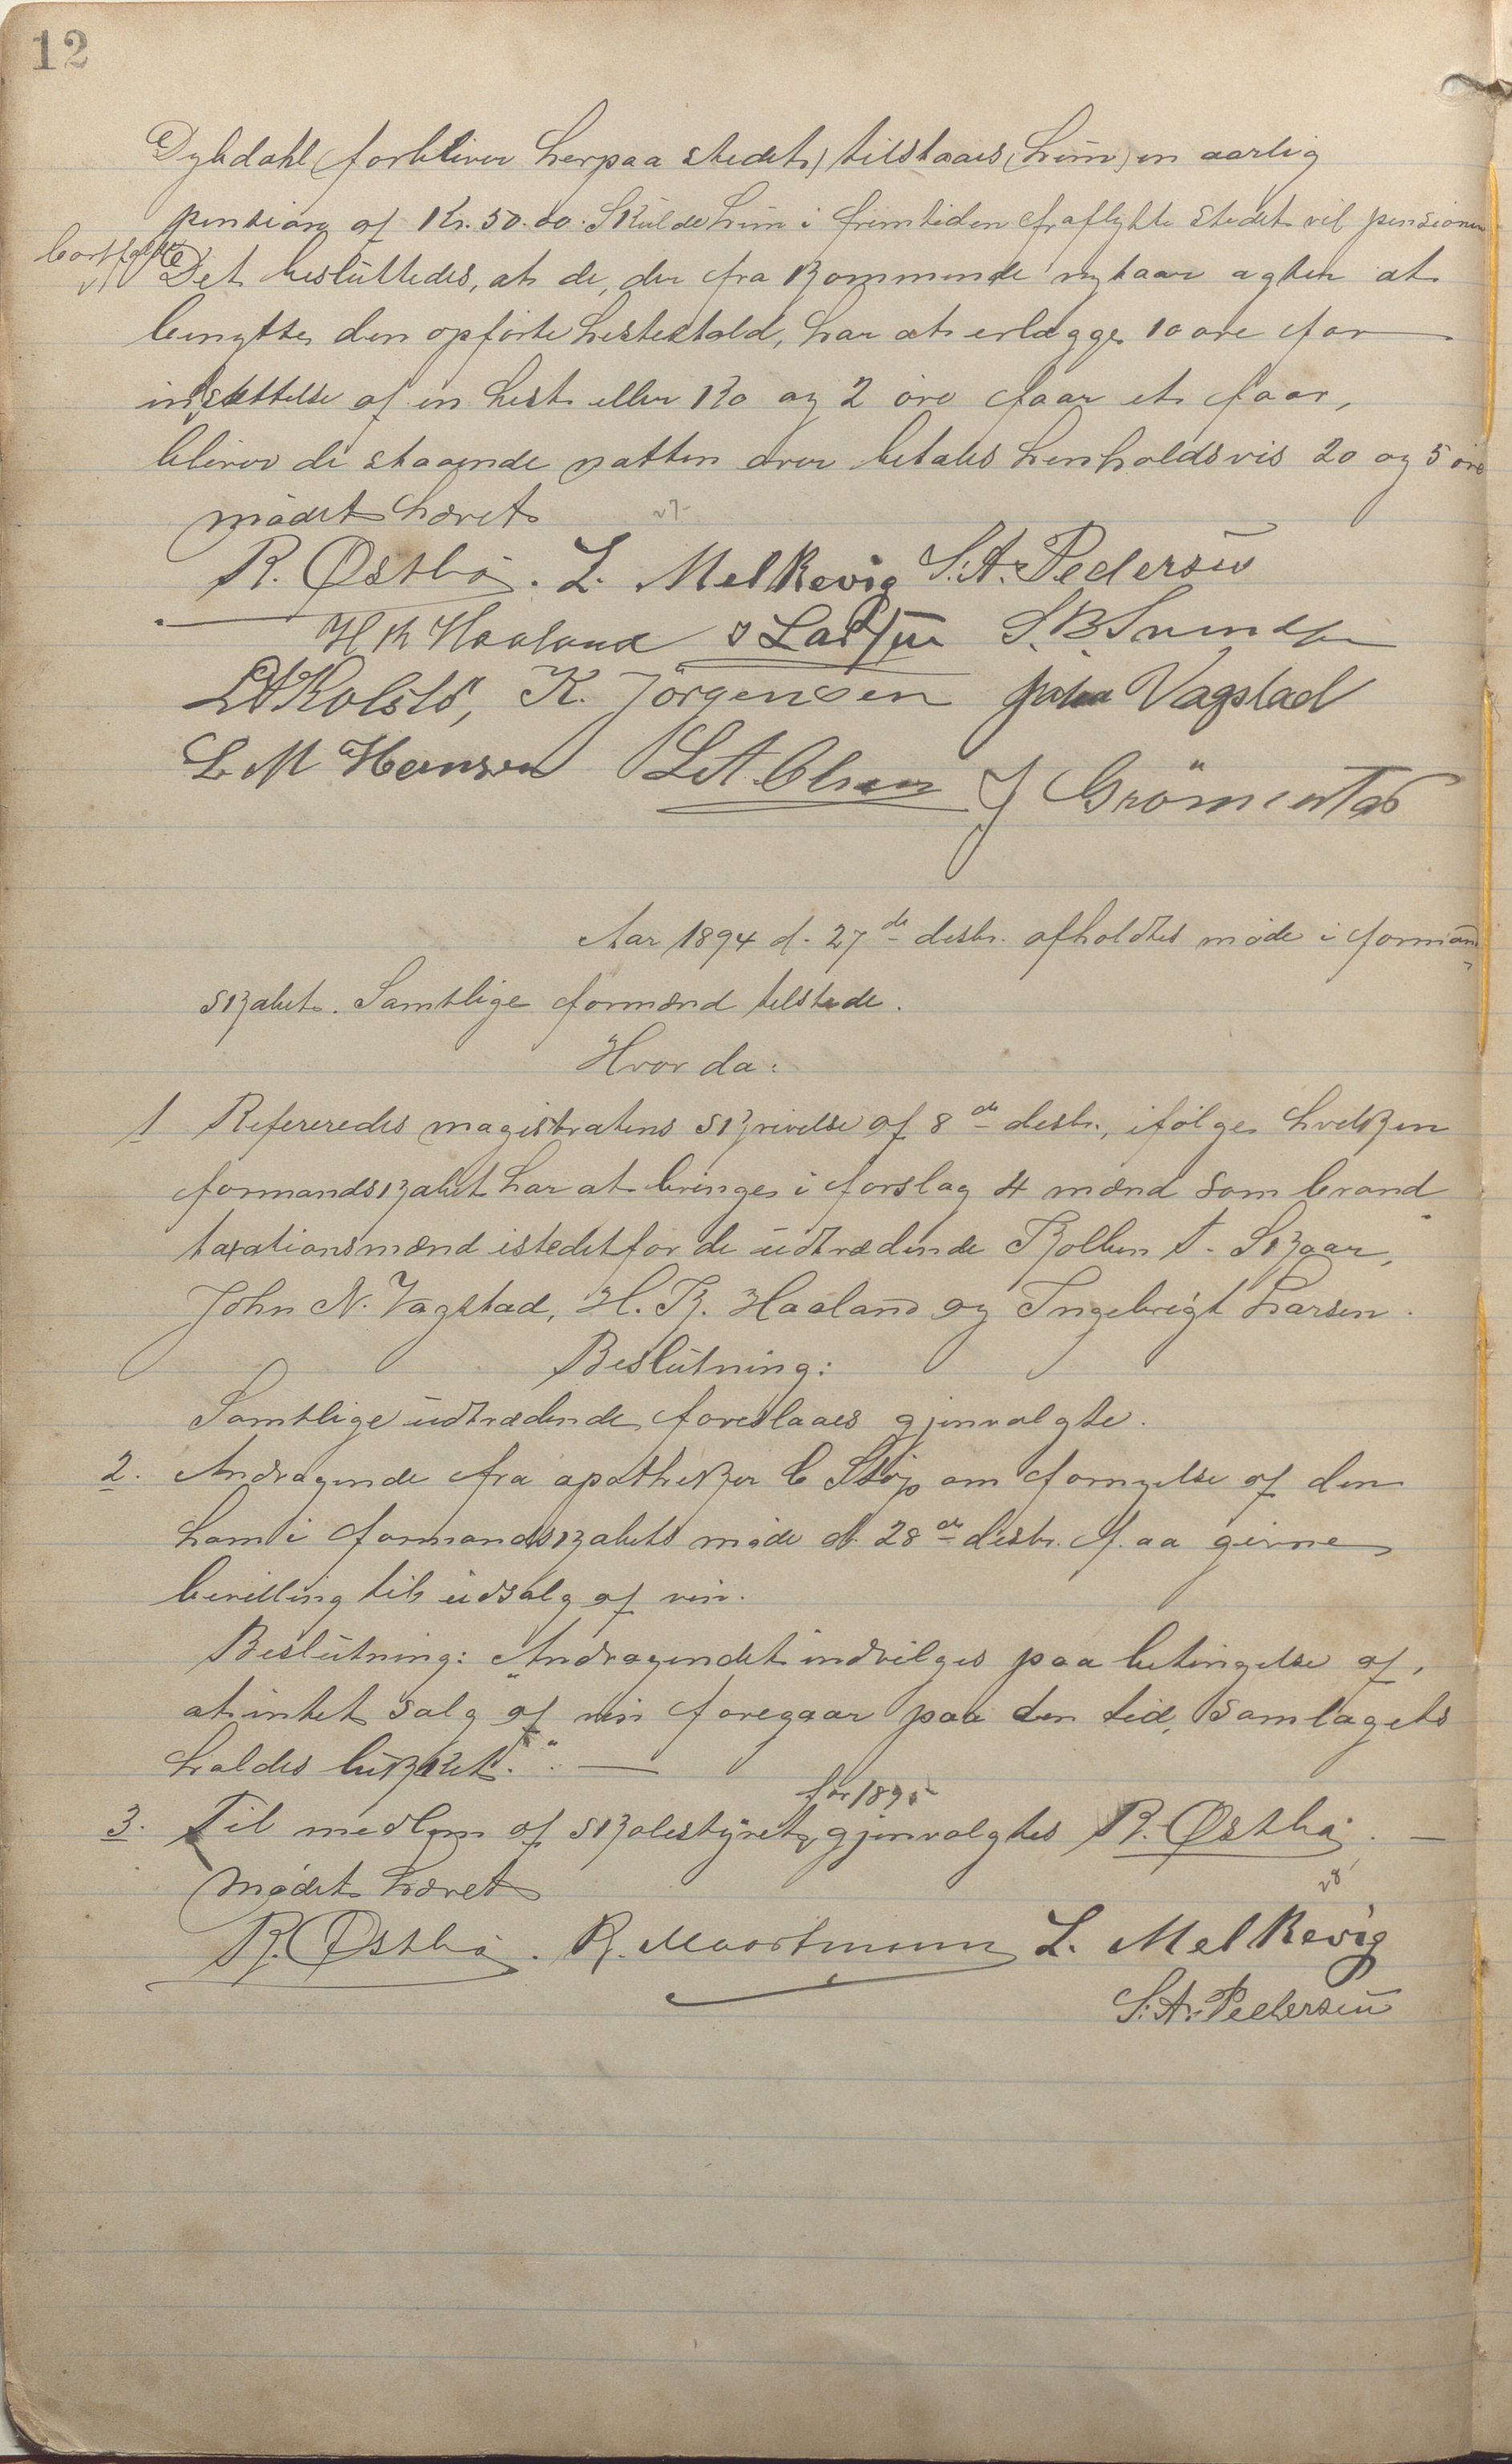 12
Dybdahl (forbliver herpaa stedet) tilstaaes (hun) en aarlig
pension af Kr. 50.00. Skulde hun i fremtiden fraflytte stedet vil pensionen
bortfalde
Det besluttedes, at de, der fra kommende nytaar agter at
benytte den opførte hestestald, har at erlægge 10 øre for
indsættelse af en hest eller ko og 2 øre faar et faar,
bliver de staaende natten over betales henholdsvis 20 og 5 øre
mødet hævet
R. Østbø. L. Melkevig S. A. Pedersen
H K Haaland I Larsen S. B. Svendsen
K. Jörgensen John Vagstad
L. M Hansen L A Olsen J
Aar 1894 d. 27de desbr. afholdtes møde i formand
skabet. Samtlige formænd tilstede.
Hvor da:
1 Refereredes magistratens skrivelse af 8de desbr., ifølge hvilken
formandskabet har at bringe i forslag 4 mænd som brand
taxationsmænd istedetfor de udtrædende Kolben A. Skaar,
John N. Vagstad, H. K. Haaland og Ingebrigt Larsen.
Beslutning:
Samtlige udtrædende foreslaaes gjenvalgte.
2. Andragende fra apotheker C Støp om fornyelse af den
ham i formandskabets møde d. 28de desbr. f. aa givne
bevilling til udsalg af vin.
Beslutning: "Andragendet indvilges paa betingelse af,
at intet salg af vin foregaar paa den tid, samlagets
holdes lukket". —
for 1895
3. Til medlem af skolestyret gjenvalgtes R. Østbø. —
Mødet hævet
R. Østbø. R. Maartmann L. Melkevig
S. A. Pedersen